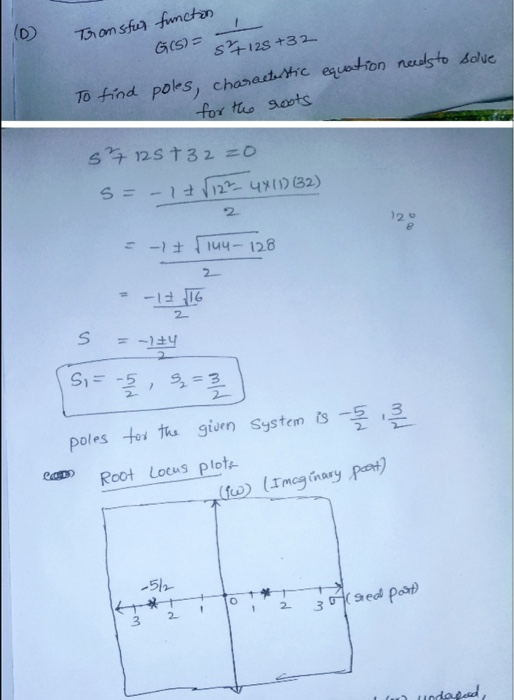 (D) Transfer function
G(s) = 1/(s²+12s+32)
To find poles, characteristic equation needs to solve
for the roots
s²+12s+32=0
s = (-1±√(12²-4×(1)(32)))/2
120
8
= (-1±√(144-128))/2
= (-1±√16)/2
s = (-1±4)/2
S₁ = -5/2, S₂ = 3/2
poles for the given system is -5/2, 3/2
Root Locus plot:
(jω) (Imaginary part)
-5/2
3 2 1 0 1 2 3 σ (real part)
undaped,